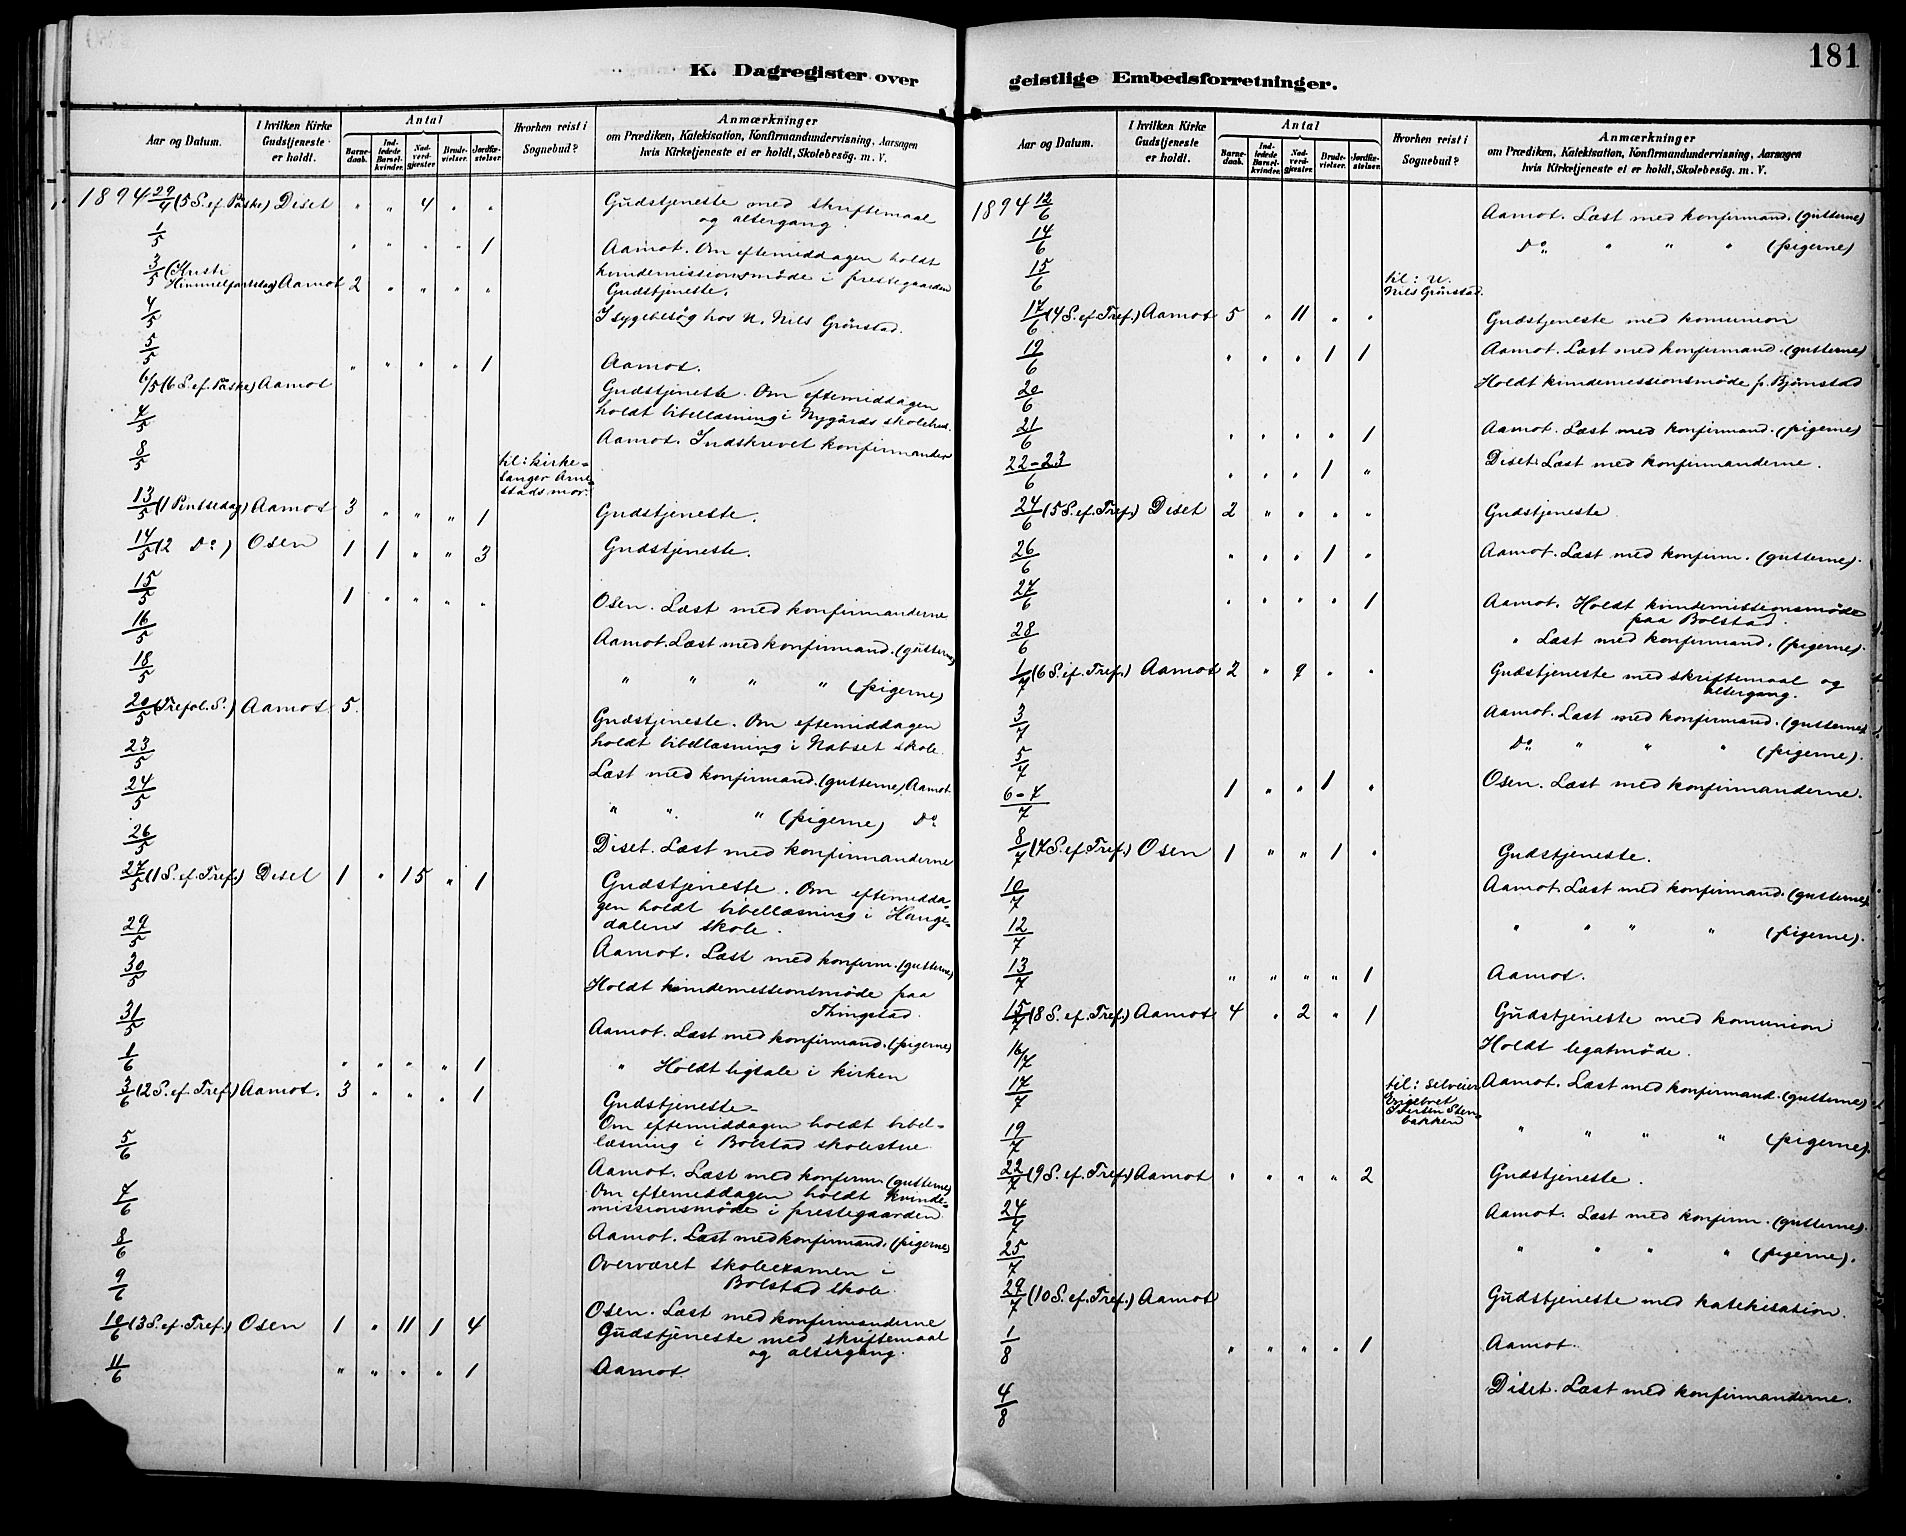 181
K. Dagregister over geistlige Embedsforretninger.
Aar og Datum.
I hvilken Kirke Gudstjeneste er holdt.
Antal
Barnedaab.
Indledede Barselkvinder.
Nadverdgjester.
Brudevielser.
Jordfæstelser.
Hvorhen reist i Sognebud?
Anmærkninger
om Prædiken, Katekisation, Konfirmandundervisning, Aarsagen
hvis Kirketjeneste ei er holdt, Skolebesøg. m. V.
1894 29/4 (5 S. ef. Paske) Diset " " 4 " " Gudstjeneste med skriftemaal
og altergang.
1/5 " " " " 1 Aamot. Om eftemiddagen holdt
kvindemissionsmøde i prestegaarden
3/5 (Kristi
Himmelfartsdag) Aamot 2 " " " " Gudstjeneste.
4/5 I sygebesøg hos N. Nils Grønstad.
5/5 " " " " 1 Aamot.
6/5 (6 S. ef. Paske) Aamot Gudstjeneste. Om eftemiddagen
holdt bibellæsning i Nygårds skolehus.
7/5 Aamot. Indskrevet konfirmander
8/5 til: kirke=
sanger Arne=
stads mor.
13/5 (1 Pintsedag) Aamot 3 " " " 1 Gudstjeneste.
14/5 (2 Do) Osen 1 1 " " 3 Gudstjeneste.
15/5 1 " " " " Osen. Læst med konfirmanderne
16/5 Aamot. Læst med konfirmand. (gutterne)
18/5 " " " " (pigerne)
20/5 (Trefol. S.) Aamot 5. Gudstjeneste. Om eftemiddagen
holdt bibellæsning i Nabset skole.
23/5 Læst med konfirmand. (gutterne) Aamot
24/5 " " " (pigerne) Do
26/5 Diset. Læst med konfirmanderne
27/5 (1 S. ef. Tref.) Diset 1 " 15 " 1 Gudstjeneste. Om eftemidda=
gen holdt bibellæsning i Hauge=
dalens skole.
29/5 Aamot. Læst med konfirm. (gutterne)
30/5 Holdt kvindemissionsmøde paa
Thingstad.
31/5 Aamot. Læst med konfirmand. (pigerne)
1/6 " " " " 1 " Holdt ligtale i kirken
3/6 (2 S. ef. Tref.) Aamot. 3 " " " 1 Gudstjeneste.
Om eftemiddagen holdt bibel=
læsning i Bolstad skolestue.
5/6 Aamot. Læst med konfirm. (gutterne)
7/6 Om eftemiddagen holdt kvinde=
missionsmøde i prestegaarden.
8/6 Aamot. Læst med konfirmand. (pigerne)
9/6 Overværet skoleexamen i
Bolstad skole.
Osen. Læst med konfirmanderne
10/6 (3 S. ef. Tref.) Osen 1 " 11 1 4 Gudstjeneste med skriftemaal
og altergang.
11/6 " " " " 1 Aamot.
Aar og Datum.
I hvilken Kirke Gudstjeneste er holdt.
Antal
Barnedaab.
Indledede Barselkvinder.
Nadverdgjester.
Brudevielser.
Jordfæstelser.
Hvorhen reist i Sognebud?
Anmærkninger
om Prædiken, Katekisation, Konfirmandundervisning, Aarsagen
hvis Kirketjeneste ei er holdt, Skolebesøg. m. V.
1894 12/6 Aamot. Læst med konfirmand. (gutterne)
14/6 Do " " " (pigerne)
15/6 til: N.
Nils Grønstad.
17/6 (4 S. ef. Tref.) Aamot 5 " 11 " " Gudstjeneste med komunion
19/6 " " " 1 1 Aamot. Læst med konfirmand. (gutterne)
20/6 Holdt kvindemissionsmøde p. Bjørnstad
21/6 " " " " 1 Aamot. Læst med konfirmand. (pigerne)
22-23/6 " " " 1 " Diset. Læst med konfirmanderne.
24/6 (5 S. ef. Tref.) Diset 2 " " " " Gudstjeneste
26/6 " " " 1 " Aamot. Læst med konfirm. (gutterne).
27/6 " " " " 1 Aamot. Holdt kvindemissionsmøde
paa Bolstad.
28/6 " Læst med konfirmand. (pigerne).
1/7 (6 S. ef. Tref.) Aamot 2 " 9 " " Gudstjeneste med skriftemaal og
altergang.
3/7 Aamot. Læst med konfirmand. (gutterne).
5/7 Do " " " (pigerne).
6-7/7 1 " " 1 " Osen. Læst med konfirmanderne.
8/7 (7 S. ef. Tref.) Osen 1 " " 1 " Gudstjeneste.
10/7 Aamot. Læst med konfirmand. (gutterne).
12/7 " " " " (pigerne).
13/7 " " " " 1 Aamot.
15/7 (8 S. ef. Tref.) Aamot 4 " 2 " 1 Gudstjeneste med komunion
16/7 Holdt legatmøde.
17/7 til: Selveier
Engebret
Iversen Sten=
bakken
Aamot. Læst med konfirmand. (gutterne)
19/7 " " " " (pigerne).
22/7 (9 S. ef. Tref.) Aamot " " " " 2 Gudstjeneste.
24/7 Aamot. Læst med konfirm. (gutterne).
25/7 " " " " (pigerne).
29/7 (10 S. ef. Tref.) Aamot Gudstjeneste med katekisation.
1/8 " " " " 1 Aamot.
4/8 Diset. Læst med konfirmanderne.